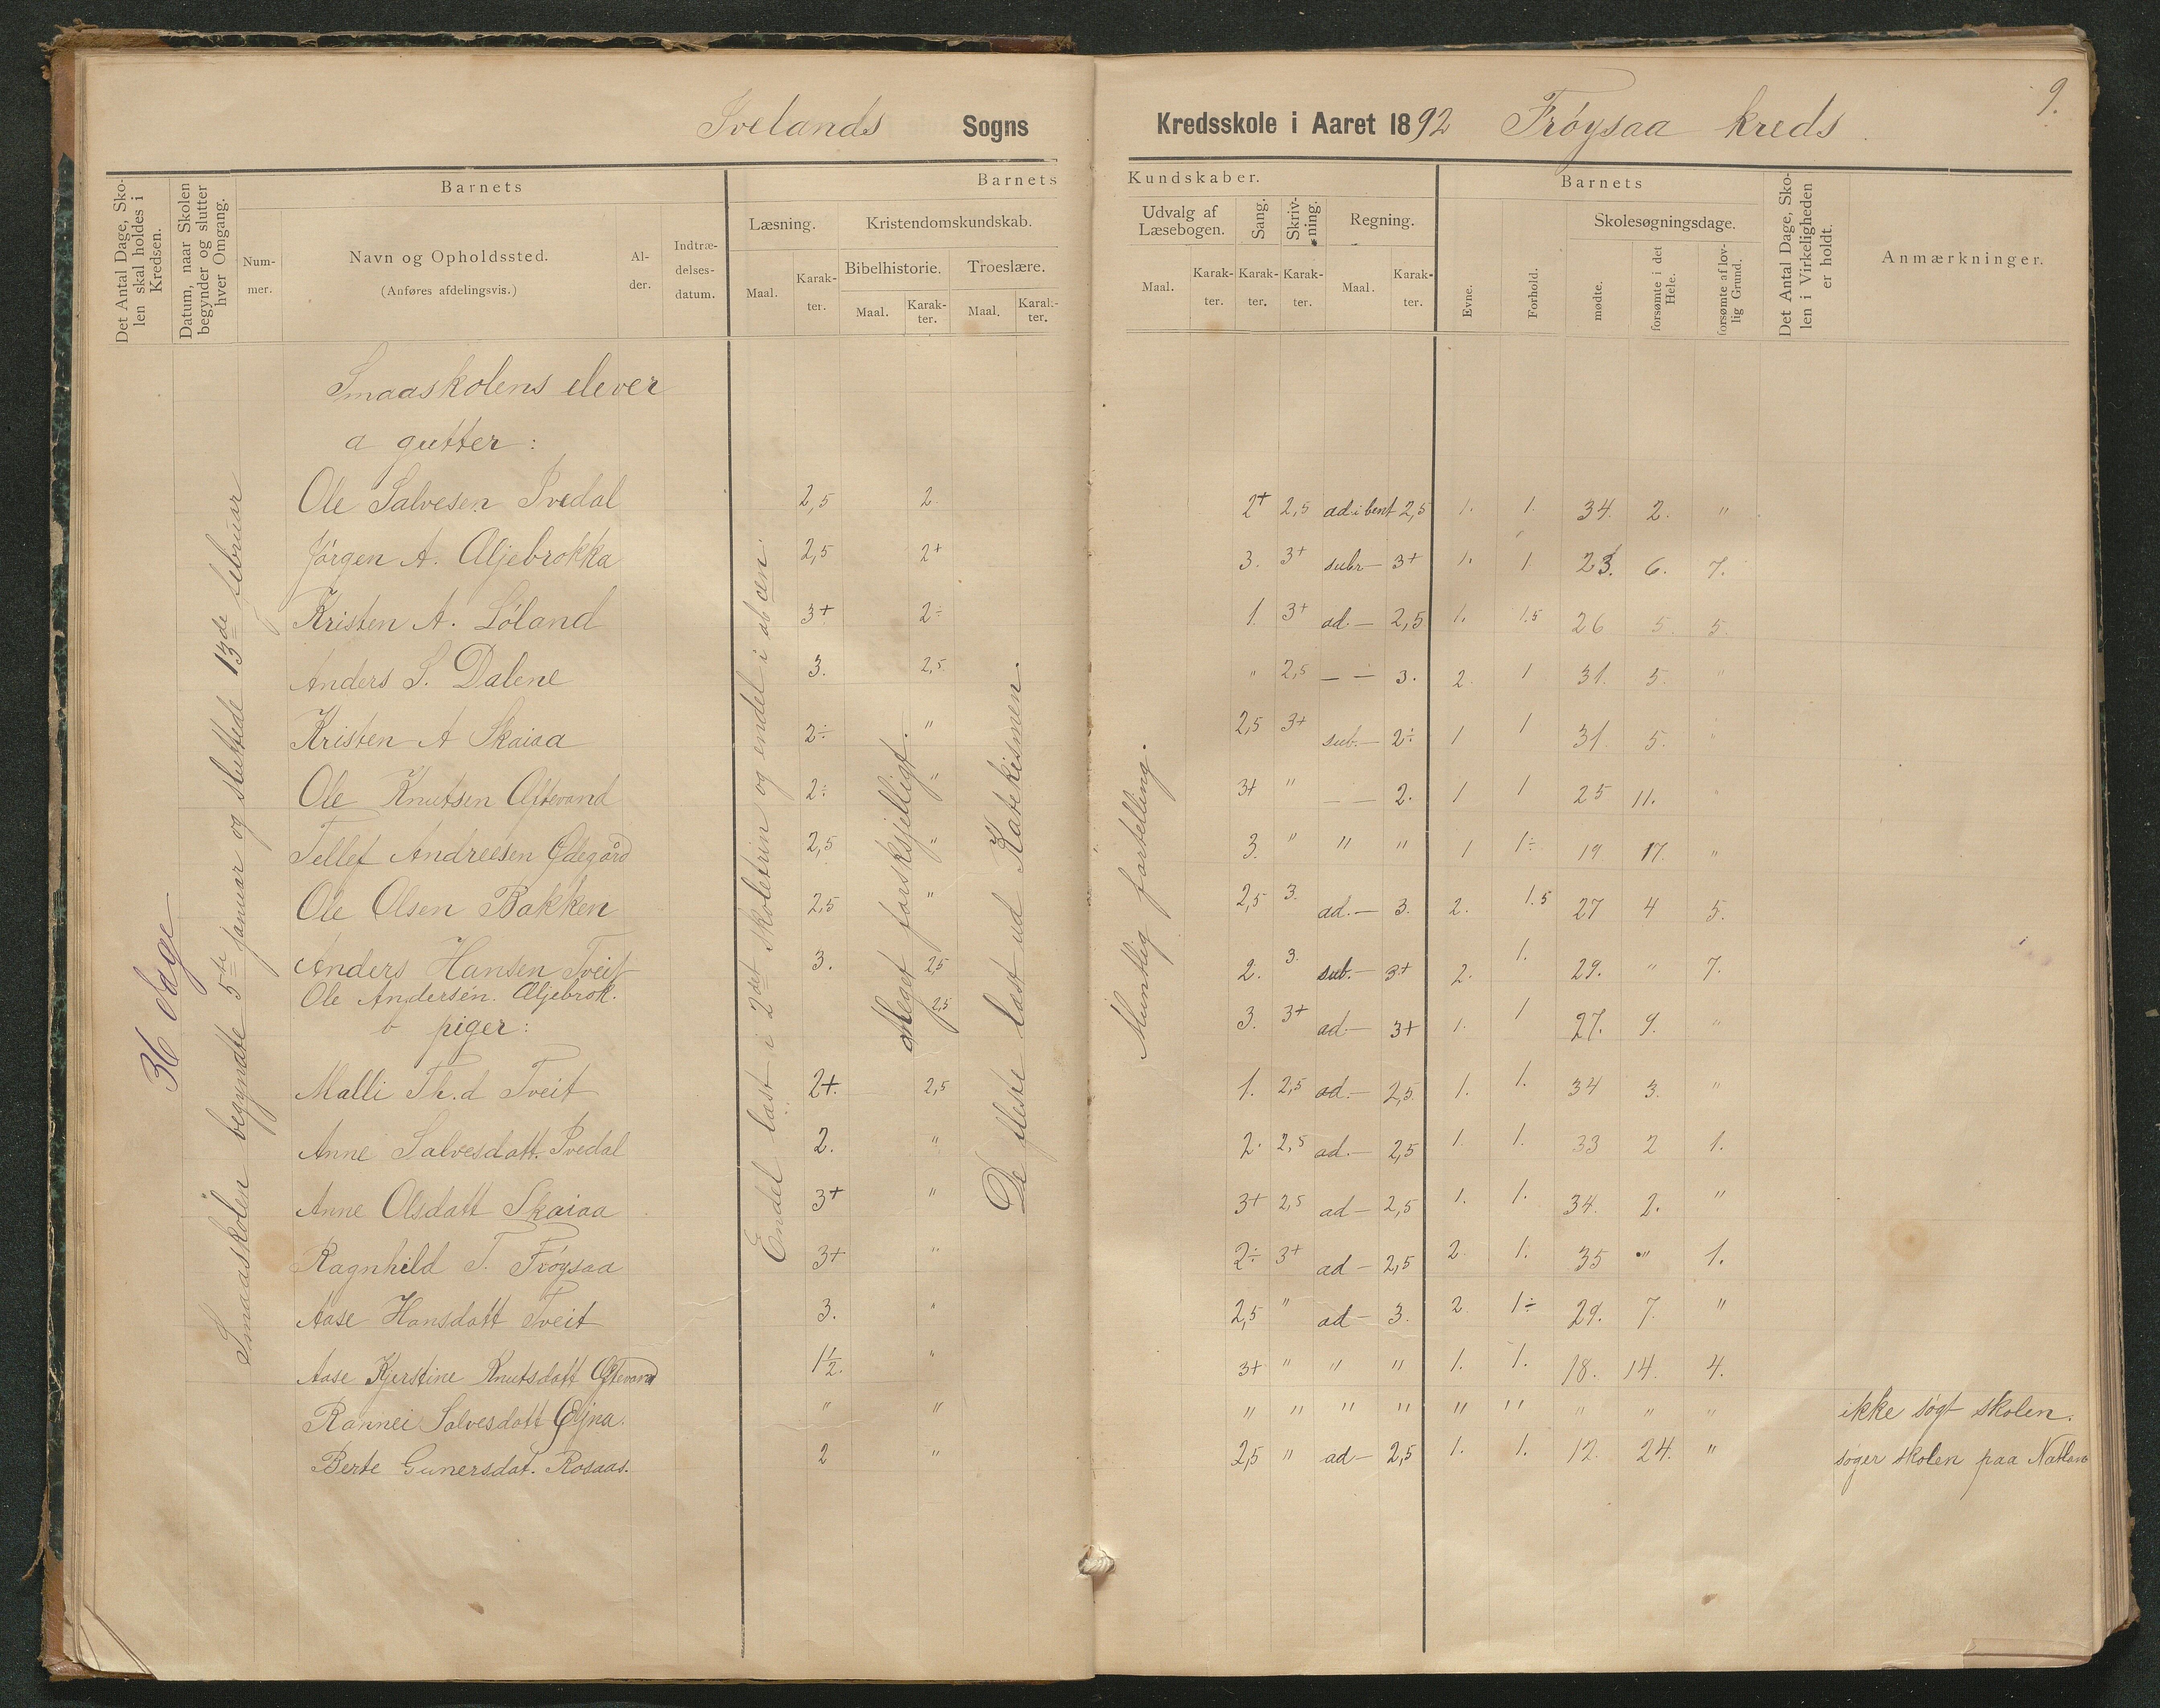 Ivelands Sogns Kredsskole i Aaret 1892 Frøysaa kreds
9.
Det Antal Dage, Sko-
len skal holdes i
Kredsen.
Datum, naar Skolen
begynder og slutter
hver Omgang.
Barnets
Num-
mer.
Navn og Opholdssted.
(Anføres afdelingsvis.)
Al-
der.
Indtræ-
delses-
datum.
Barnets Kundskaber.
Læsning.
Maal.
Karak-
ter.
Kristendomskundskab.
Bibelhistorie.
Maal.
Karak-
ter.
Troeslære.
Maal.
Karak-
ter.
Udvalg af
Læsebogen.
Maal.
Karak-
ter.
Sang.
Karak-
ter.
Skriv-
ning.
Karak-
ter.
Regning.
Maal.
Karak-
ter.
Barnets
Evne.
Forhold.
Skolesøgningsdage.
mødte.
forsømte i det
Hele.
forsømte af lov-
lig Grund.
Det Antal Dage, Sko-
len i Virkeligheden
er holdt.
Anmærkninger.
36 dage
Smaaskolen begyndte 5te januar og sluttede 13de februar
Endel læst i 2det skoletrin og endel i abcen.
Meget forskjelligt.
De fleste læst ud Katekismen.
Mundtlig fortelling.
Smaaskolens elever
a gutter:
Ole Salvesen Ivedal 2,5 2 2+ 2,5 ad. i bent 2,5 1. 1. 34. 2. "
Jörgen A. Øljebrokka 2,5 2+ 3. 3+ subr — 3+ 1. 1 23. 6. 7.
Kristen A. Löland 3+ 2÷ 1. 3+ ad. — 2,5 1. 1.5 26 5. 5.
Anders S. Dalene 3. 2,5 " 2,5 — — 3. 2. 1 31. 5. "
Kristen A Skaiaa 2÷ " 2,5 3+ sub. — 2÷ 1 1 31. 5. "
Ole Knutsen Oftevand 2÷ " 3+ " — — 2. 1 1 25 11. "
Tellef Andreesen Ødegård 2,5 " 3. " " " 1 1÷ 19 17. "
Ole Olsen Bakken 2,5 " 2,5 3. ad. — 3. 2. 1.5 27 4 5.
Anders Hansen Tveit 3. 2,5 2. 3. sub. — 3+ 2. 1. 29. " 7.
Ole Andersen. Øljebrok. 2,5 3. 3+ ad — 3+ 1. 1 27. 9. "
b piger:
Malli Th.d Tveit 2+. 2,5 1. 2,5 ad. — 2,5 1. 1. 34 3. "
Anne Salvesdatt. Ivedal 2. " 2. 2,5 ad. — 2,5 1. 1. 33 2 1.
Anne Olsdatt Skaiaa 3+ " 3+ 2,5 ad — 2,5 1. 1. 34. 2. "
Ragnhild T. Frøysaa 3+ " 2÷ 3+ ad — 2,5 2. 1. 35 " 1.
Aase Hansdatt Tveit 3. " 2,5 " ad — 3. 2. 1÷ 29. 7. "
Aase Kjerstine Knutsdatt Oftevand 1½. " 3+ " " " 1. 1. 18. 14. 4.
Rannei Salvesdatt " " " " " " " " " " " ikke søgt skolen.
Berte Gunersdat. Rosaas. 2 " 2,5 " ad — 2,5 1. 1. 12. 24. " søger skolen paa